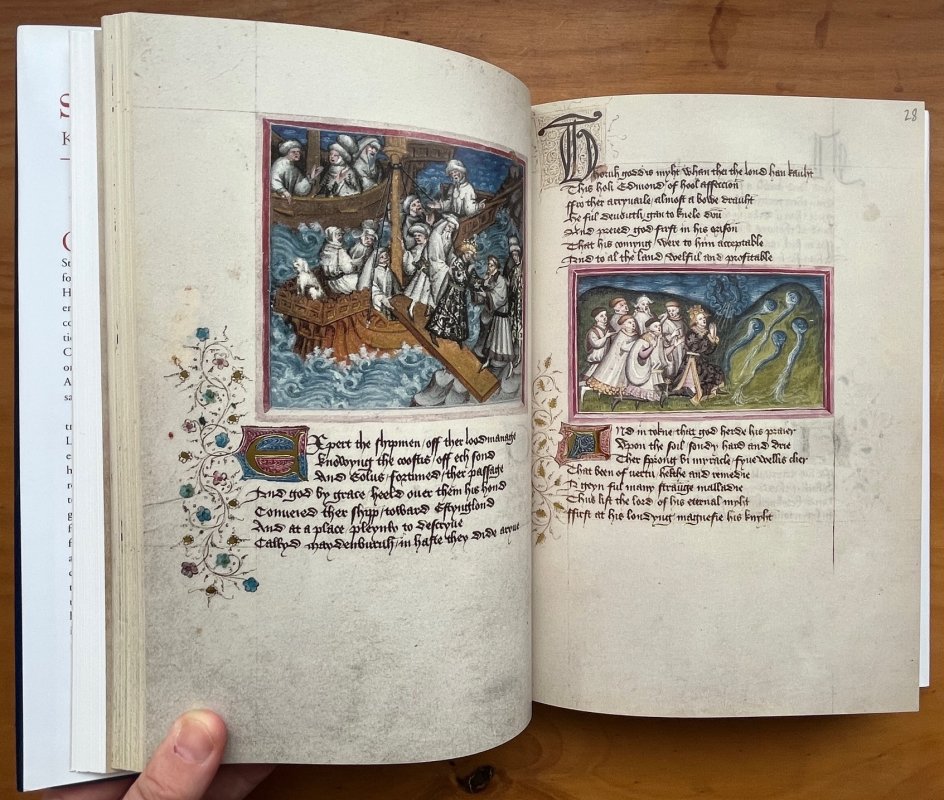 Expert the shypmen / off ther loodmanage
Knowyng the coostus / off ech sond
And Eolus fortuned / ther passage
And god by grace heeld ouer them his hond
Conveied ther shyp / toward Estynglond
And at a place pleynly to descryue
Callyd maydenburuh / in haste they dide aryve
28
Thoruh goddis myht whan thei the lond han kauht
This holi Edmond of hool affeccion
Ffro ther arryvaile / almost a bowe drauht
He ful devoutli gan to knele doun
And preied god first in his orison
That his comyng were to him acceptable
And to al the land welful and profitable
And in tokne that god herde his praier
Upon the soil sondy hard and drie
Ther sprong bi myracle fyue wellis cler
That been of vertu helthe and remedie
Ageyn ful many straunge malladie
Thus list the lord of his eternal myht
Ffirst at his londyng magnefie his knyht